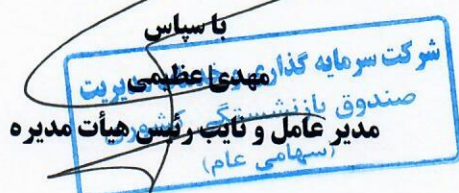 با سپاس
مهدی عظیمی
مدیر عامل و نایب رئیس هیأت مدیره
شرکت سرمایه گذاری و خدمات مدیریت
صندوق بازنشستگی کشوری
(سهامی عام)